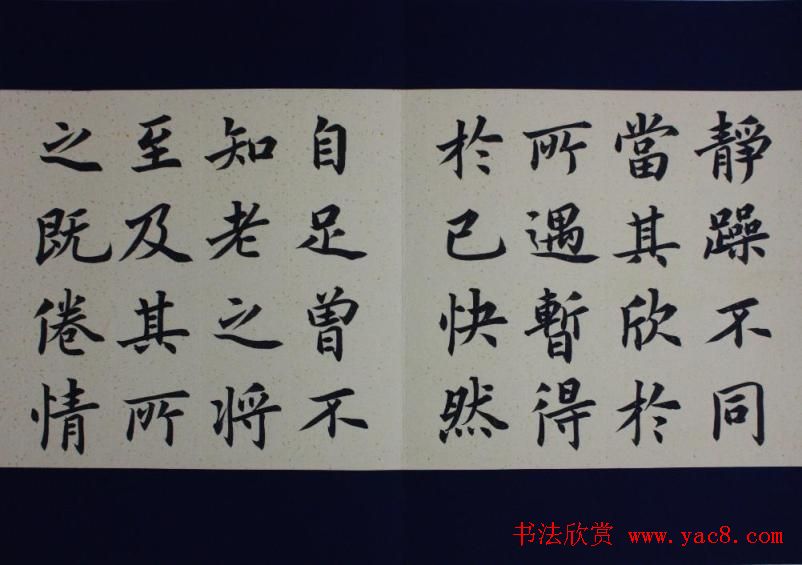 靜躁不同
當其欣於
所遇暫得
於己快然
自足曾不
知老之将
至及其所
之既倦情
书法欣赏 www.yac8.com